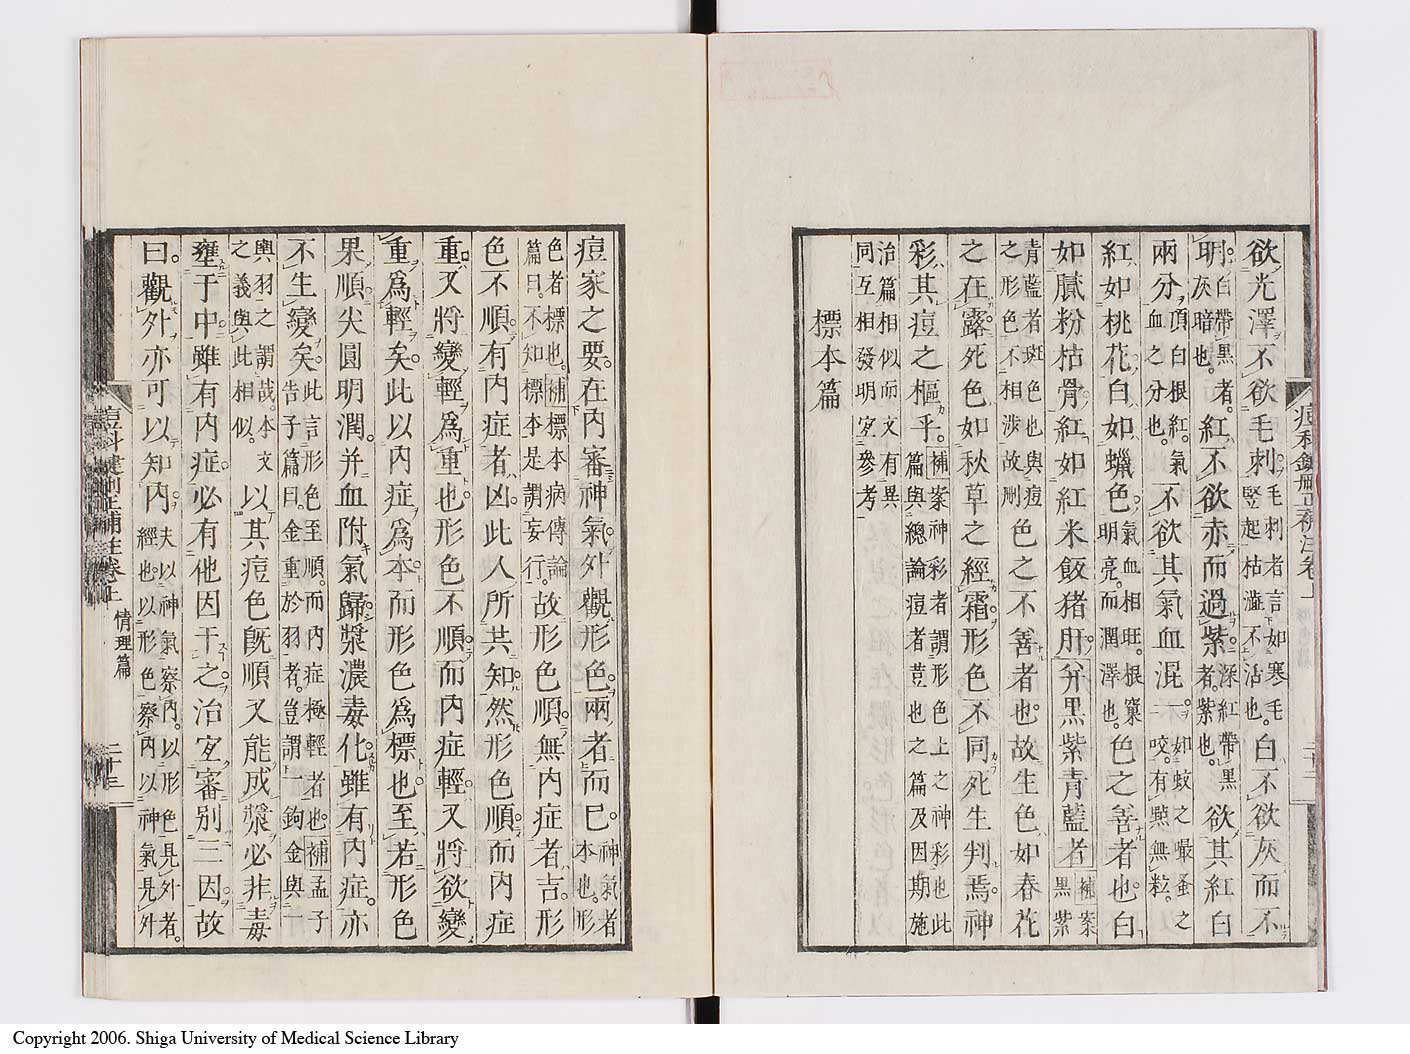 欲光澤不欲毛刺毛刺者言如寒毛竪起枯澁不沾也白不欲灰而不
明白帶黑者灰暗也紅不欲赤而過紫深紅帶黑者紫也欲其紅白
兩分頂白根紅氣血之分也不欲其氣血混一如蚊之嘬蚤之咬有㸃無粒
紅如桃花白如蠟色氣血相旺根窠明亮而潤澤也色之善者也白
如膩粉枯骨紅如紅米飯猪肝分黑紫青藍者補案黑紫
青藍者斑色也與痘之形色不相涉故刪色之不善者也故生色如春花
之在露死色如秋草之經霜形色不同死生判焉神
彩其痘之樞乎補案神彩者謂形色上之神彩也此篇與總論痘者豈也之篇及因期施
治篇相似而文有異同互相發明宜參考
標本篇
痘科鍵刪正補注卷上
二十二
痘家之要在内審神氣外觀形色兩者而已神氣者本也形
色者標也補標本病傳論篇曰不知標本是謂妄行故形色順無内症者吉形
色不順有内症者凶此人所共知然形色順而内症
重又將變輕爲重也形色不順而内症輕又將欲變
重爲輕矣此以内症爲本而形色爲標也至若形色
果順尖圓明潤并血附氣歸漿濃毒化雖有内症亦
不生變矣此言形色至順而内症極輕者也補孟子告子篇曰金重於羽者豈謂一鉤金與一
輿羽之謂哉本文之義與此相似以其痘色旣順又能成漿必非毒
壅于中雖有内症必有他因干之治宜審別三因故
曰觀外亦可以知内夫以神氣察内以形色見外者經也以形色察内以神氣見外
痘科鍵刪正補注卷上
情理篇
二十三
Copyright 2006. Shiga University of Medical Science Library